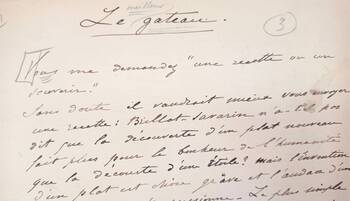 meilleur
Le gateau.
3
Vous me demandez "une recette ou un
souvenir."
Sans doute il vaudrait mieux vous envoyer
une recette: Brillat-Savarin n'a-t-il pas
dit que la découverte d'un plat nouveau
fait plus pour le bonheur de l'humanité
que la découverte d'un Étoile? mais l'invention
d'un plat est chose grave et l'audace d'un
Le plus simple